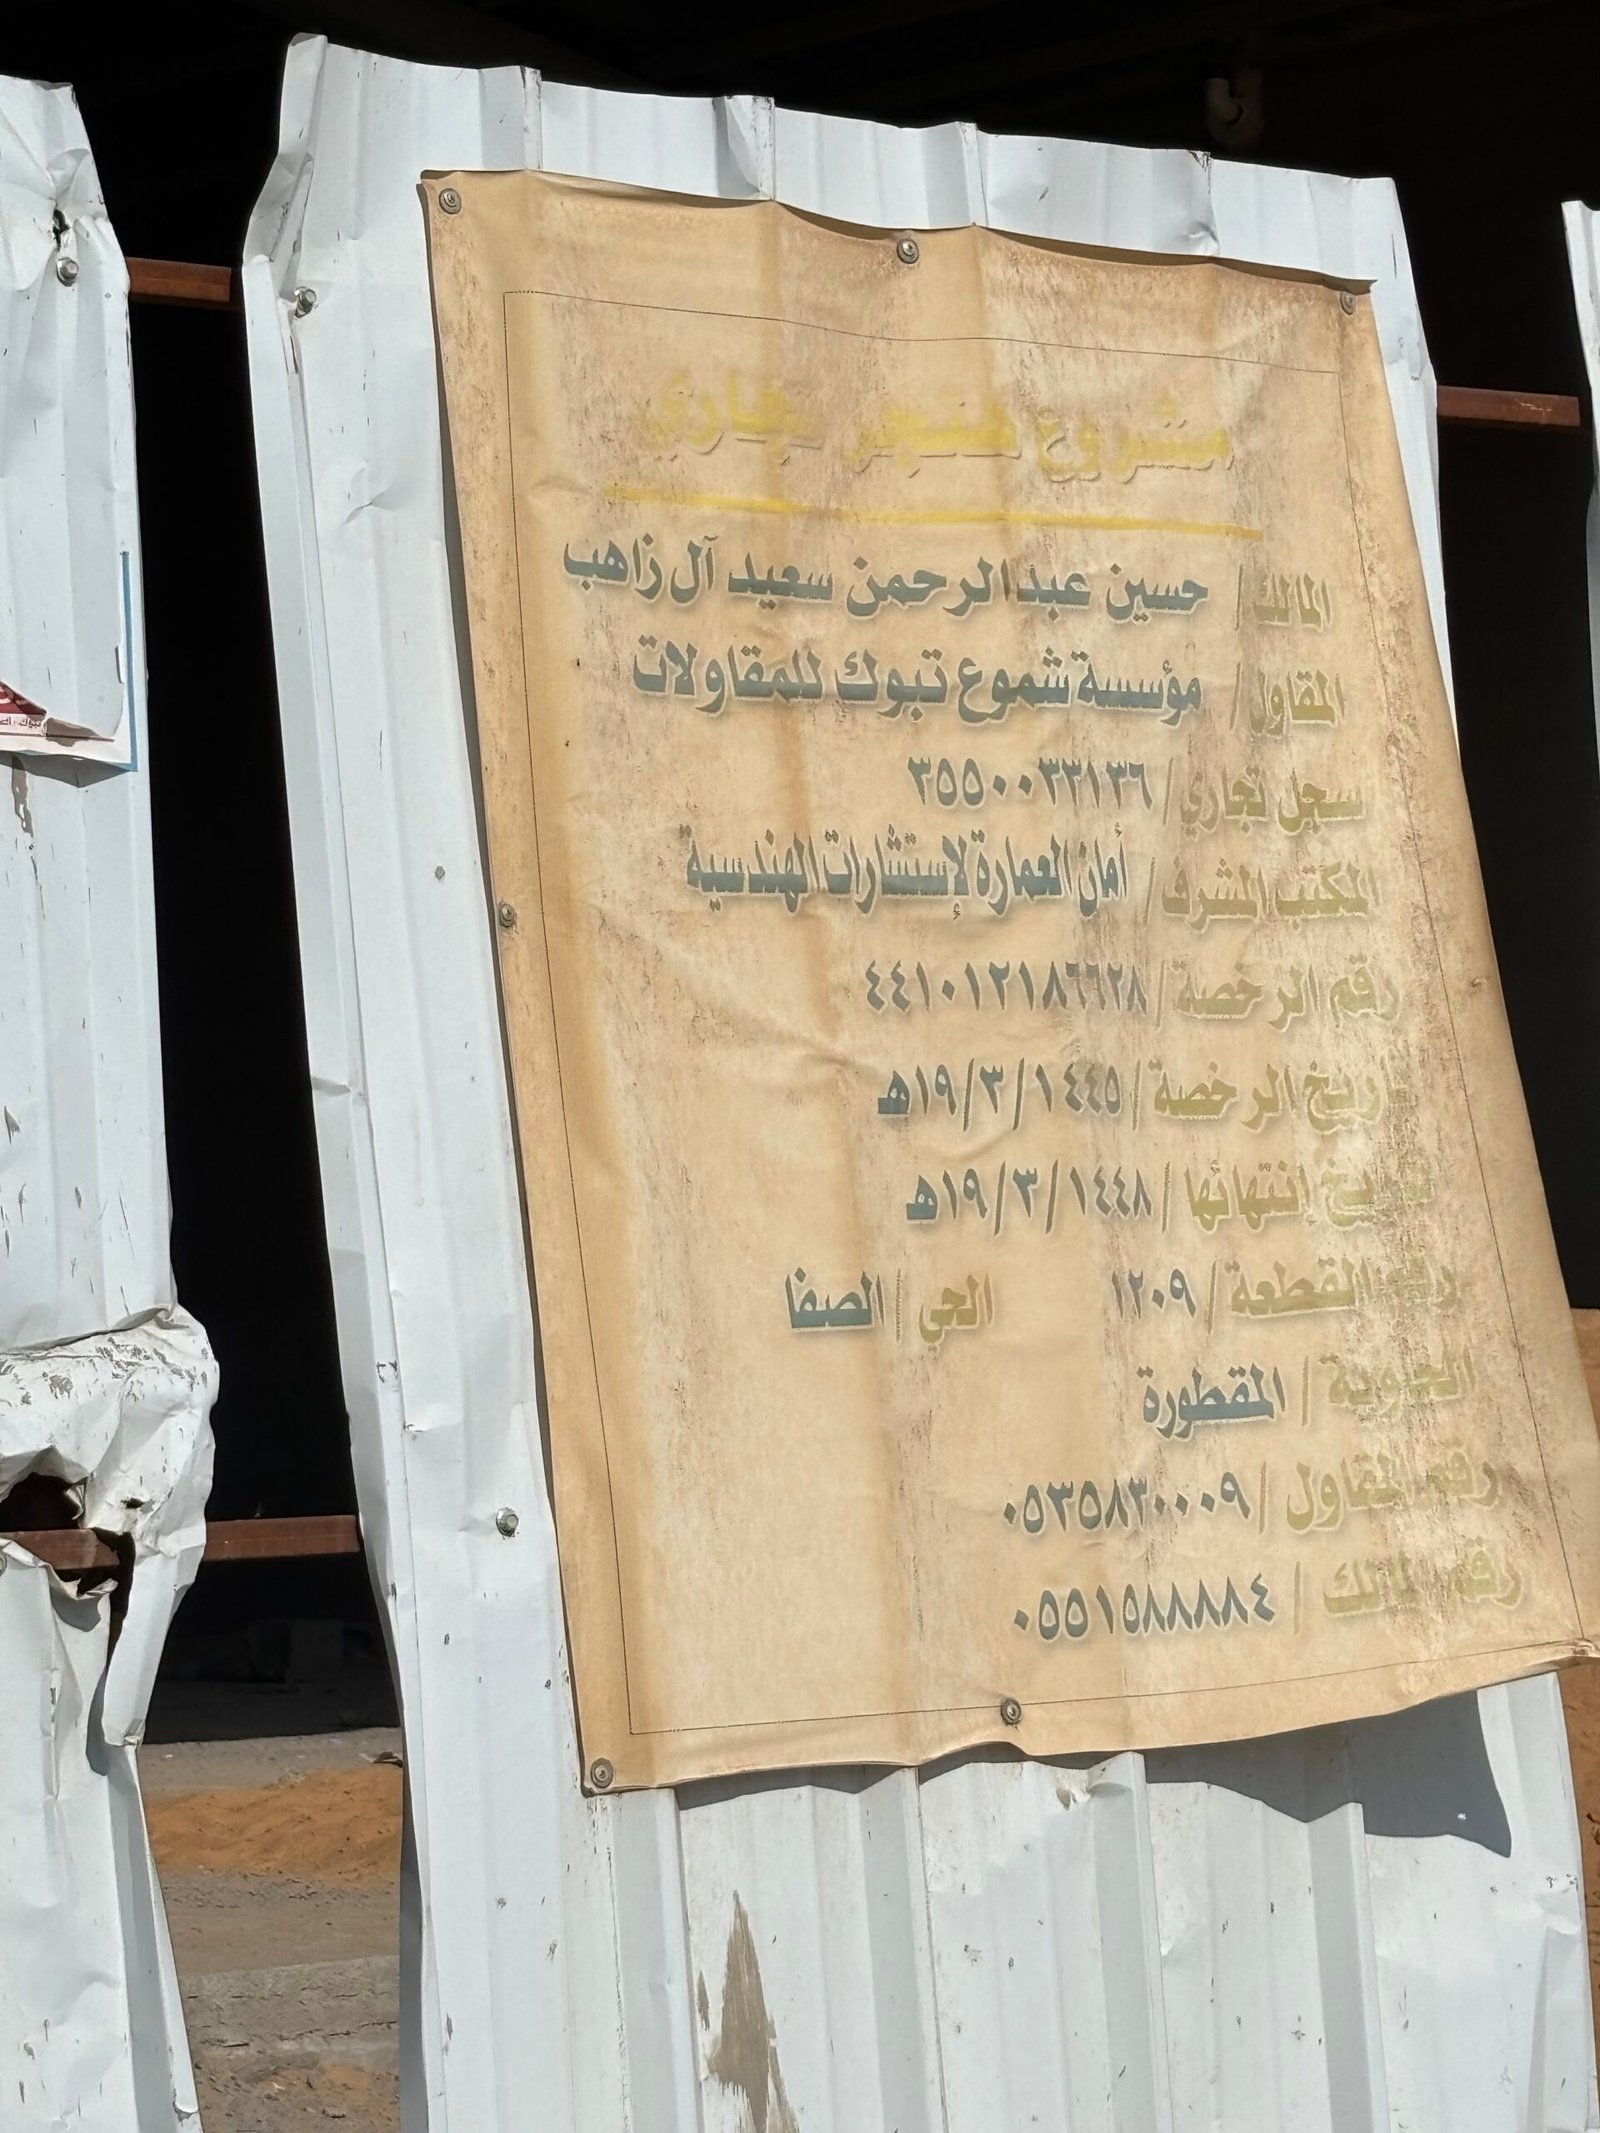 مشروع هنجر تجاري
المالك / حسين عبدالرحمن سعيد آل زاهب
المقاول / مؤسسة شموع تبوك للمقاولات
سجل تجاري / ٣٥٥٠٠٣٣١٣٦
المكتب المشرف / أمان العمارة لإستشارات الهندسية
رقم الرخصة / ٤٤١٠١٢١٨٦٦٢٨
تاريخ الرخصة / ١٩/٣/١٤٤٥هـ
تاريخ إنتهائها / ١٩/٣/١٤٤٨هـ
رقم القطعة / ١٢٠٩ الحي / الصفا
/ المقطورة
رقم المقاول / ٠٥٣٥٨٣٠٠٠٩
رقم المالك / ٠٥٥١٥٨٨٨٨٤